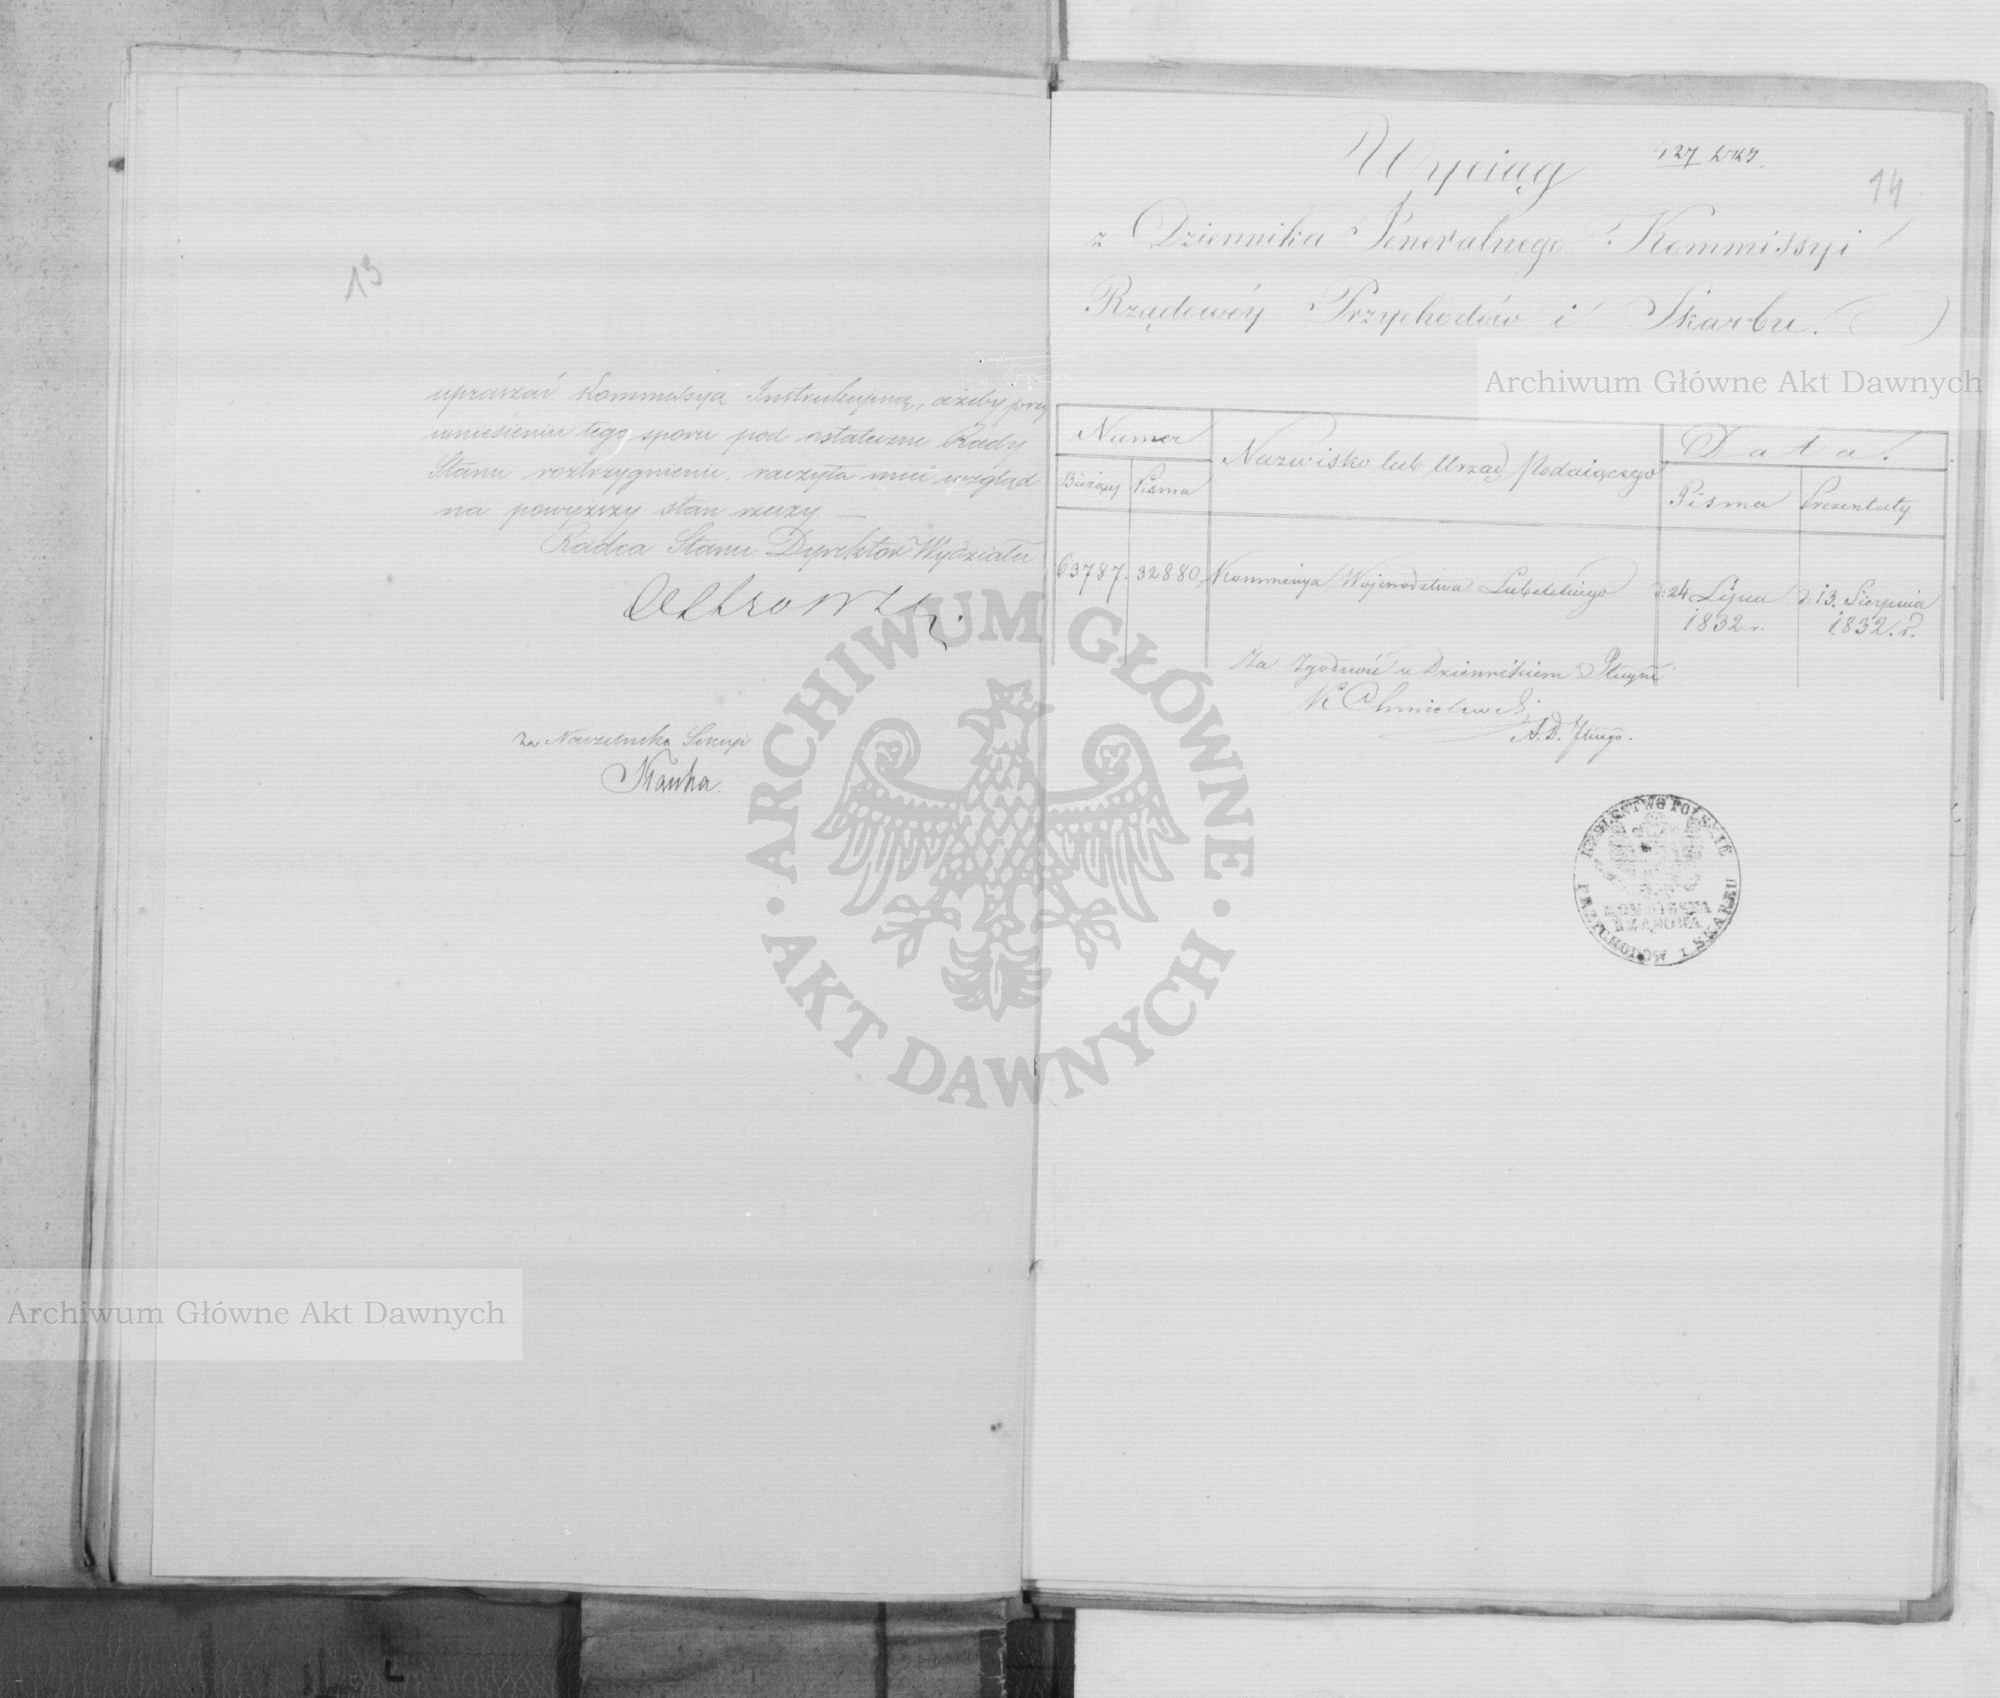 13
upraszać Kommissyą Instrukcyjną, ażeby przy
wniesieniu tego sporu pod ostateczne Rady
Stanu roztrzygnienie, raczyła mieć wzgląd
na powyższy stan rzeczy —
Radca Stanu Dyrektor Wydziału
Za Naczelnika Sekcyi
14
Wyciąg
z Dziennika Jeneralnego Kommissyi
Rządowéy Przychodów i Skarbu.
Numer
Bieżący Pisma
Nazwisko lub Urząd Podaiącego
Data.
Pisma Prezentaty
63787. 32880 Kommissya Województwa Lubelskiego d: 24 Lipca 1832 r. d: 13. Sierpnia 1832. r.
Za Zgodność z Dziennikiem
K Chmielewski
A.D.
KRÓLESTWO POLSKIE
KOMMISSYA
RZĄDOWA
PRZYCHODÓW I SKARBU
Archiwum Główne Akt Dawnych
Archiwum Główne Akt Dawnych
ARCHIWUM GŁÓWNE
AKT DAWNYCH